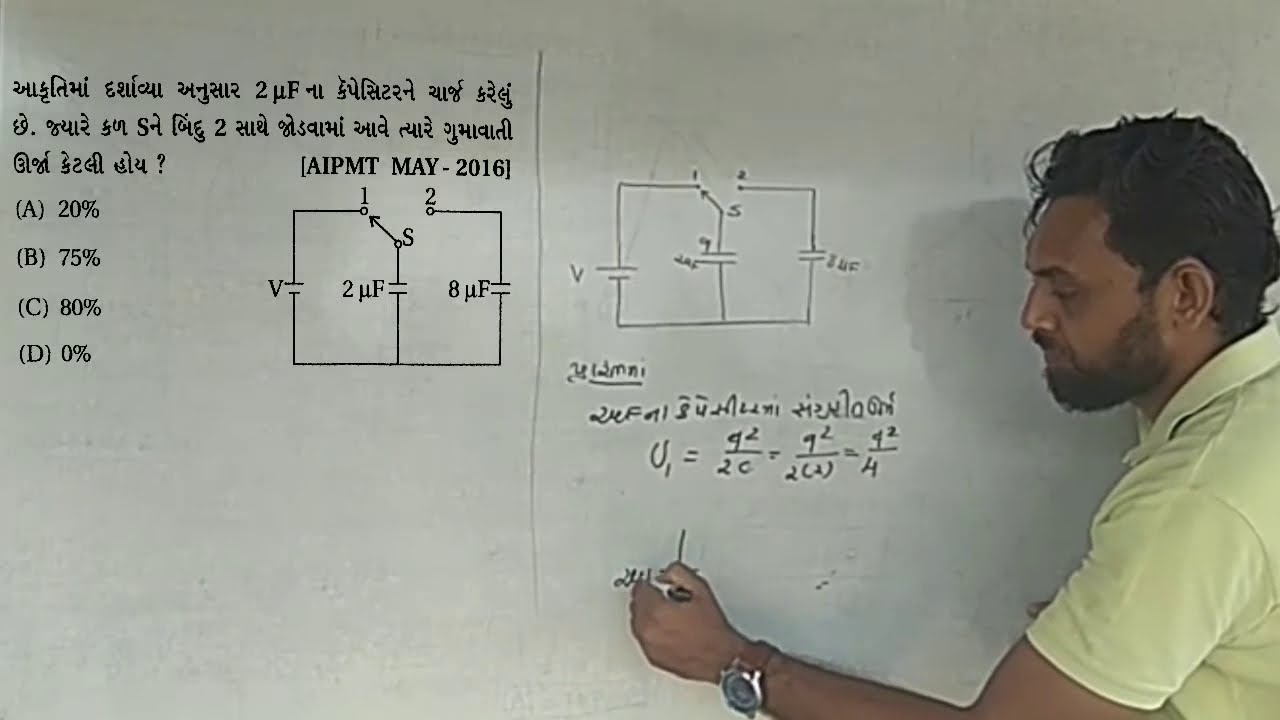 આકૃતિમાં દર્શાવ્યા અનુસાર 2 μF ના કૅપેસિટરને ચાર્જ કરેલું
છે. જ્યારે કળ Sને બિંદુ 2 સાથે જોડવામાં આવે ત્યારે ગુમાવાતી
ઊર્જા કેટલી હોય ?
[AIPMT MAY - 2016]
(A) 20%
(B) 75%
(C) 80%
(D) 0%
1 2
S
V 2 μF 8 μF
1 2
S
q
V 2μF 8μF
પ્રારંભમાં
2μFના કેપેસીટરમાં સંગ્રહીત ઊર્જા
U₁ = q²/2C = q²/2(2) = q²/4